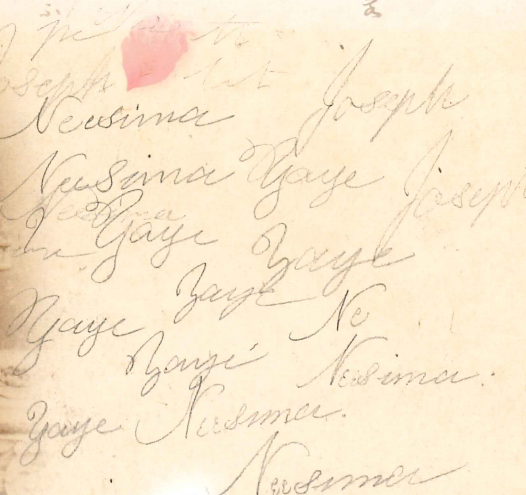 Joseph
Neesima Joseph
Neesima Yaye Joseph
Neesima
Yaye Yaye
Yaye Yaye Ne
Yaye Neesima.
Yaye Neesima.
Neesima